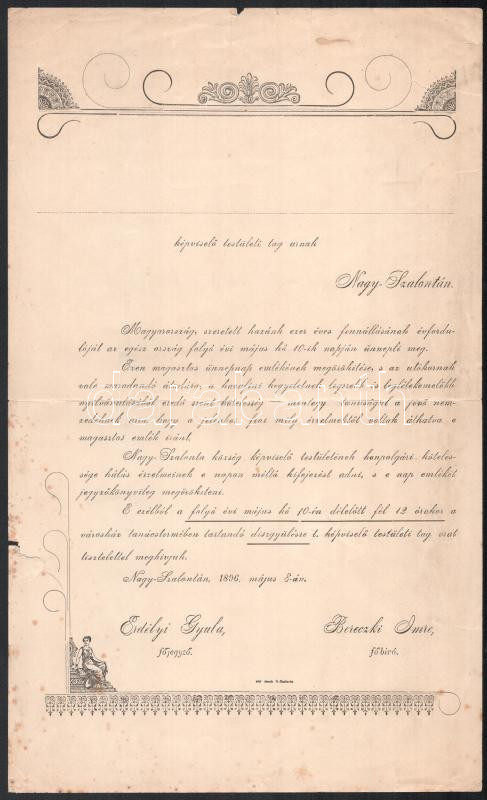 képviselő testületi tag urnak
Nagy-Szalontán.
Magyarország, szeretett hazánk ezer éves fennállásának évfordu-
lóját az egész ország folyó évi május hó 10-ik napján ünnepli meg.
Ezen magasztos ünnepnap emlékének megörökitése, s az utókornak
való átadása a hazafiui kegyeletnek legszebb s legjélekemelőbb
szent kötelesség — mintegy a jövő nem-
zedéknek arra, hogy a jelenkor fiai mily érzelmektől voltak áthatva e
magasztos emlék iránt.
Nagy-Szalonta község képviselő testületének honpolgári köteles-
sége hálás érzelmeinek e napon méltó kifejezést adni, s e nap emlékét
jegyzőkönyvileg megörökiteni.
E czélból a folyó évi május hó 10-én délelőtt fél 12 órakor a
városház tanácstermében tartandó diszgyülésre t. képviselő testületi tag urat
tisztelettel meghivjuk.
Nagy-Szalontán, 1896. május 8-án.
Erdélyi Gyula, Bereczki Imre,
főjegyző. főbiró.